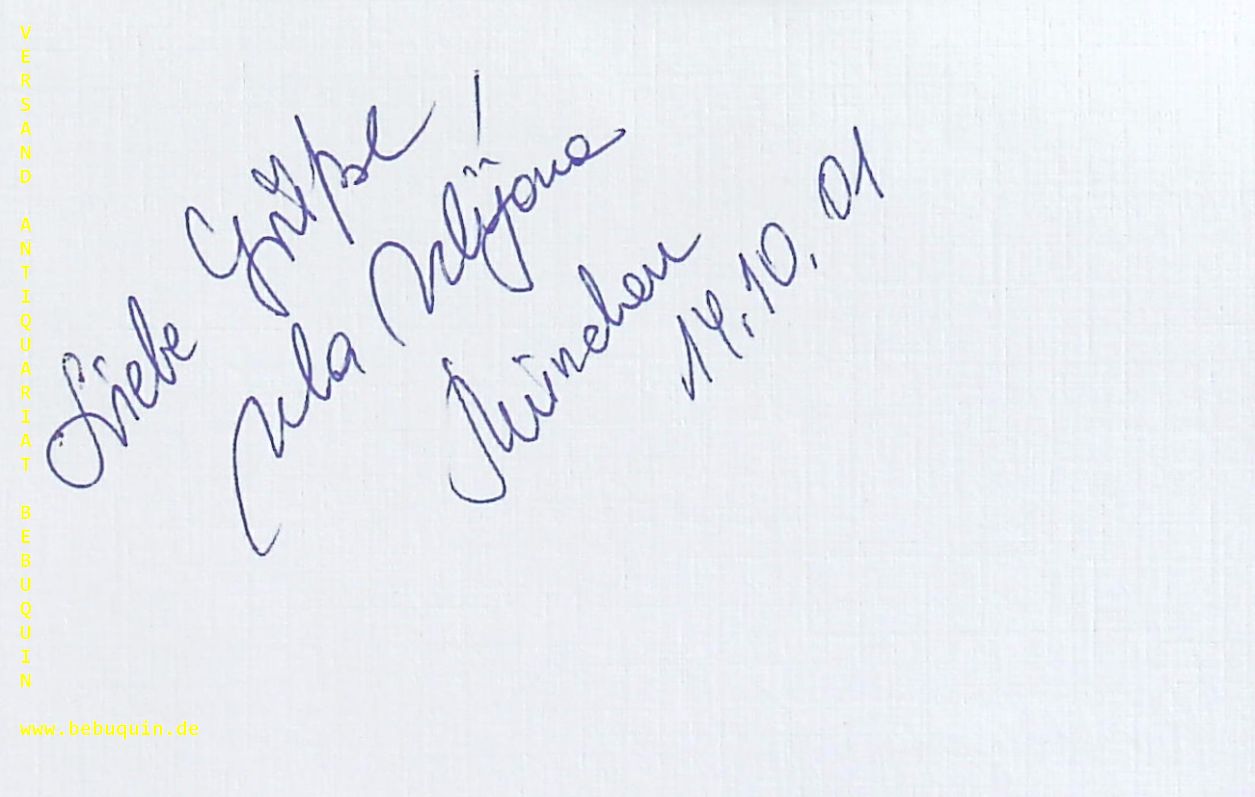 Liebe Grüße!
München
14.10.01
VERSAND ANTIQUARIAT BEBUQUIN
www.bebuquin.de